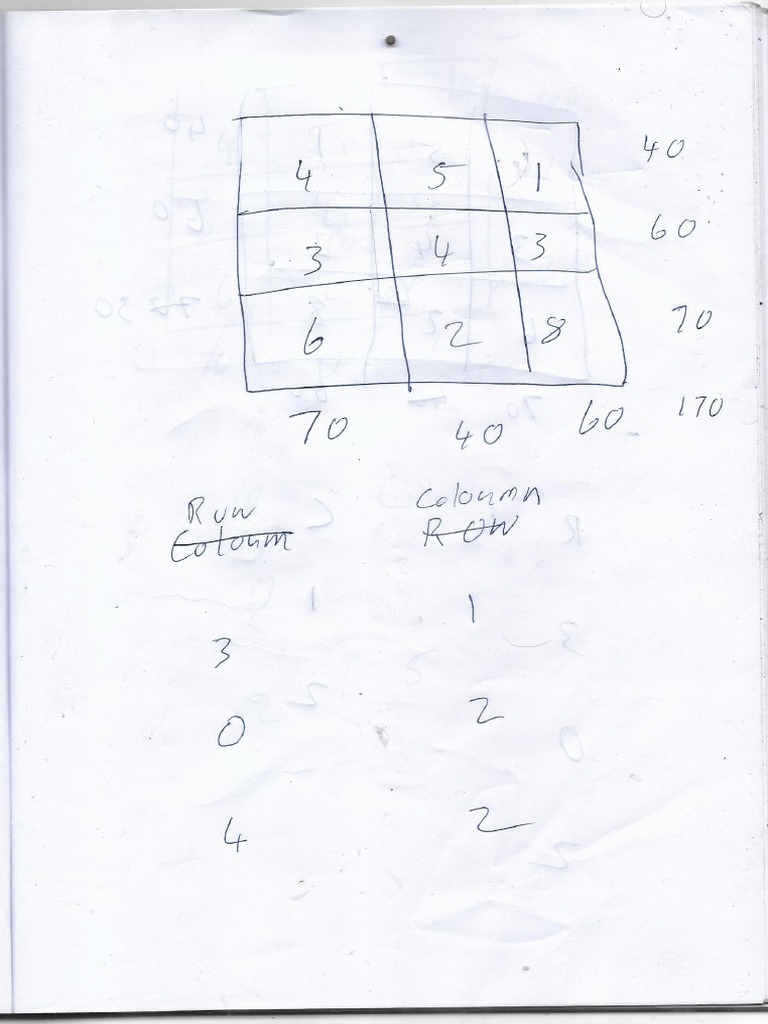 4 5 1 40
3 4 3 60
6 2 8 70
70 40 60 170
Row Coloumn
Coloum Row
1
3
0 2
4 2